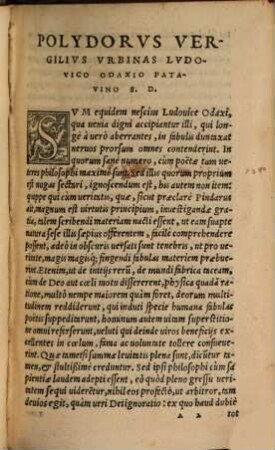 POLYDORVS VER-
GILIVS VRBINAS LVDO-
VICO ODAXIO PATA-
VINO S. D.
SVM equidem nescius Ludouice Odaxi,
qua uenia digni accipiantur illi, qui lon-
gè à uero aberrantes, in fabulis duntaxat
neruos prorsum omnes contenderint. In
quorum sane numero, cum poëtæ tam ue-
tres philosophi maximo sunt, sed illis quorum proprium
est nugas sectari, ignoscendum est, his autem non item:
quippe qui cum ueritatis, quæ, sicut præclarè Pindarus
ait, magnum est uirtutis principium, inuestigandæ gra-
tia, talem scribendi materiam nacti essent, ut eam suapte
natura sese illis sapius offerentem, facile comprehendere
possent, adeò in obscuris uersati sunt tenebris, ut pro ue-
ritate, magis magisq; fingendi fabulas materiem præbue-
rint. Etenim, ut de initijs rerũ, de mundi fabrica taceam,
cum de Deo aut cœli motu dissererent, physica quadã ra-
tione, multò nempe maiorem quàm fuit, deorum multi-
tudinem reddiderunt, qui induti specie humana fabulas
poëtis suppeditarunt, hominum autem uitam superstitio-
ne omni referserunt, ueluti qui deinde uiros beneficijs ex-
cellentes in cœlum, fama ac uoluntate tollere consueue-
rint. Quæ tametsi summæ leuitatis plena sunt, dicũtur ta-
men, & stultissimè creduntur. Sed ipsi philosophi cùm sa-
pientiæ laudem adepti essent, eò quòd pleno gressu ueri-
tatem sequi uiderẽtur, nihil eos profectò, ut arbitror, tam
deuios egit, quàm ueri Dei ignoratio: ex quo haud dubiè
A 2 tot